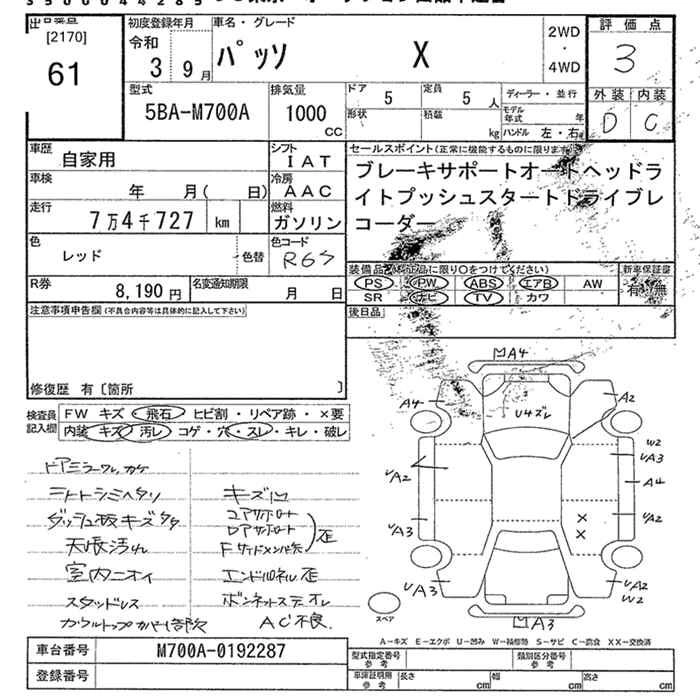 [2170]
61
初度登録年月
令和
3 9月
車名・グレード
パッソ X
2WD
・
4WD
評価点
3
外装 内装
D C
型式
5BA-M700A
排気量
1000
CC
ドア
5
定員
5 人
形状
積載
kg
ディーラー・並行
モデル年式 年
ハンドル 左・右
車歴
自家用
シフト
IAT
車検
年 月( 日)
冷房
AAC
走行
7万4千727 km
燃料
ガソリン
色
レッド
色替
色コード
R67
R券
8,190円
名変通知期限
月 日
セールスポイント(正常に機能するものに限ります)
ブレーキサポートオートヘッドラ
イトプッシュスタートドライブレ
コーダー
装備品(純正品に限り○をつけてください)
PS PW ABS エアB AW
SR ナビ TV カワ
新車保証書
有・無
後日品
注意事項申告欄(不具合内容等は具体的に記入して下さい)
修復歴 有〔箇所 〕
検査員
記入欄
FW キズ・飛石・ヒビ割・リペア跡・×要
内装 キズ・汚レ・コゲ・穴・スレ・キレ・破レ
ドアミラーワレ カケ
ダッシュ板キズ
天張汚れ
室内ニオイ
スタッドレス
キズ凹
コアサポート
ロアサポート
Fサイドメンバ先
歪
エンドパネル歪
ボンネットステー
AC不良
A4
A4
U4ズレ
A2
W2
UA3
A4
UA2
UA2
UA3
×
×
UA3
UA2
W2
A3
スペア
A-キズ E-エクボ U-凹み W-補修跡 S-サビ C-腐食 XX-交換済
車台番号
M700A-0192287
登録番号
型式指定番号
参考
類別区分番号
参考
車庫証明用
参考
長さ cm 幅 cm 高さ cm